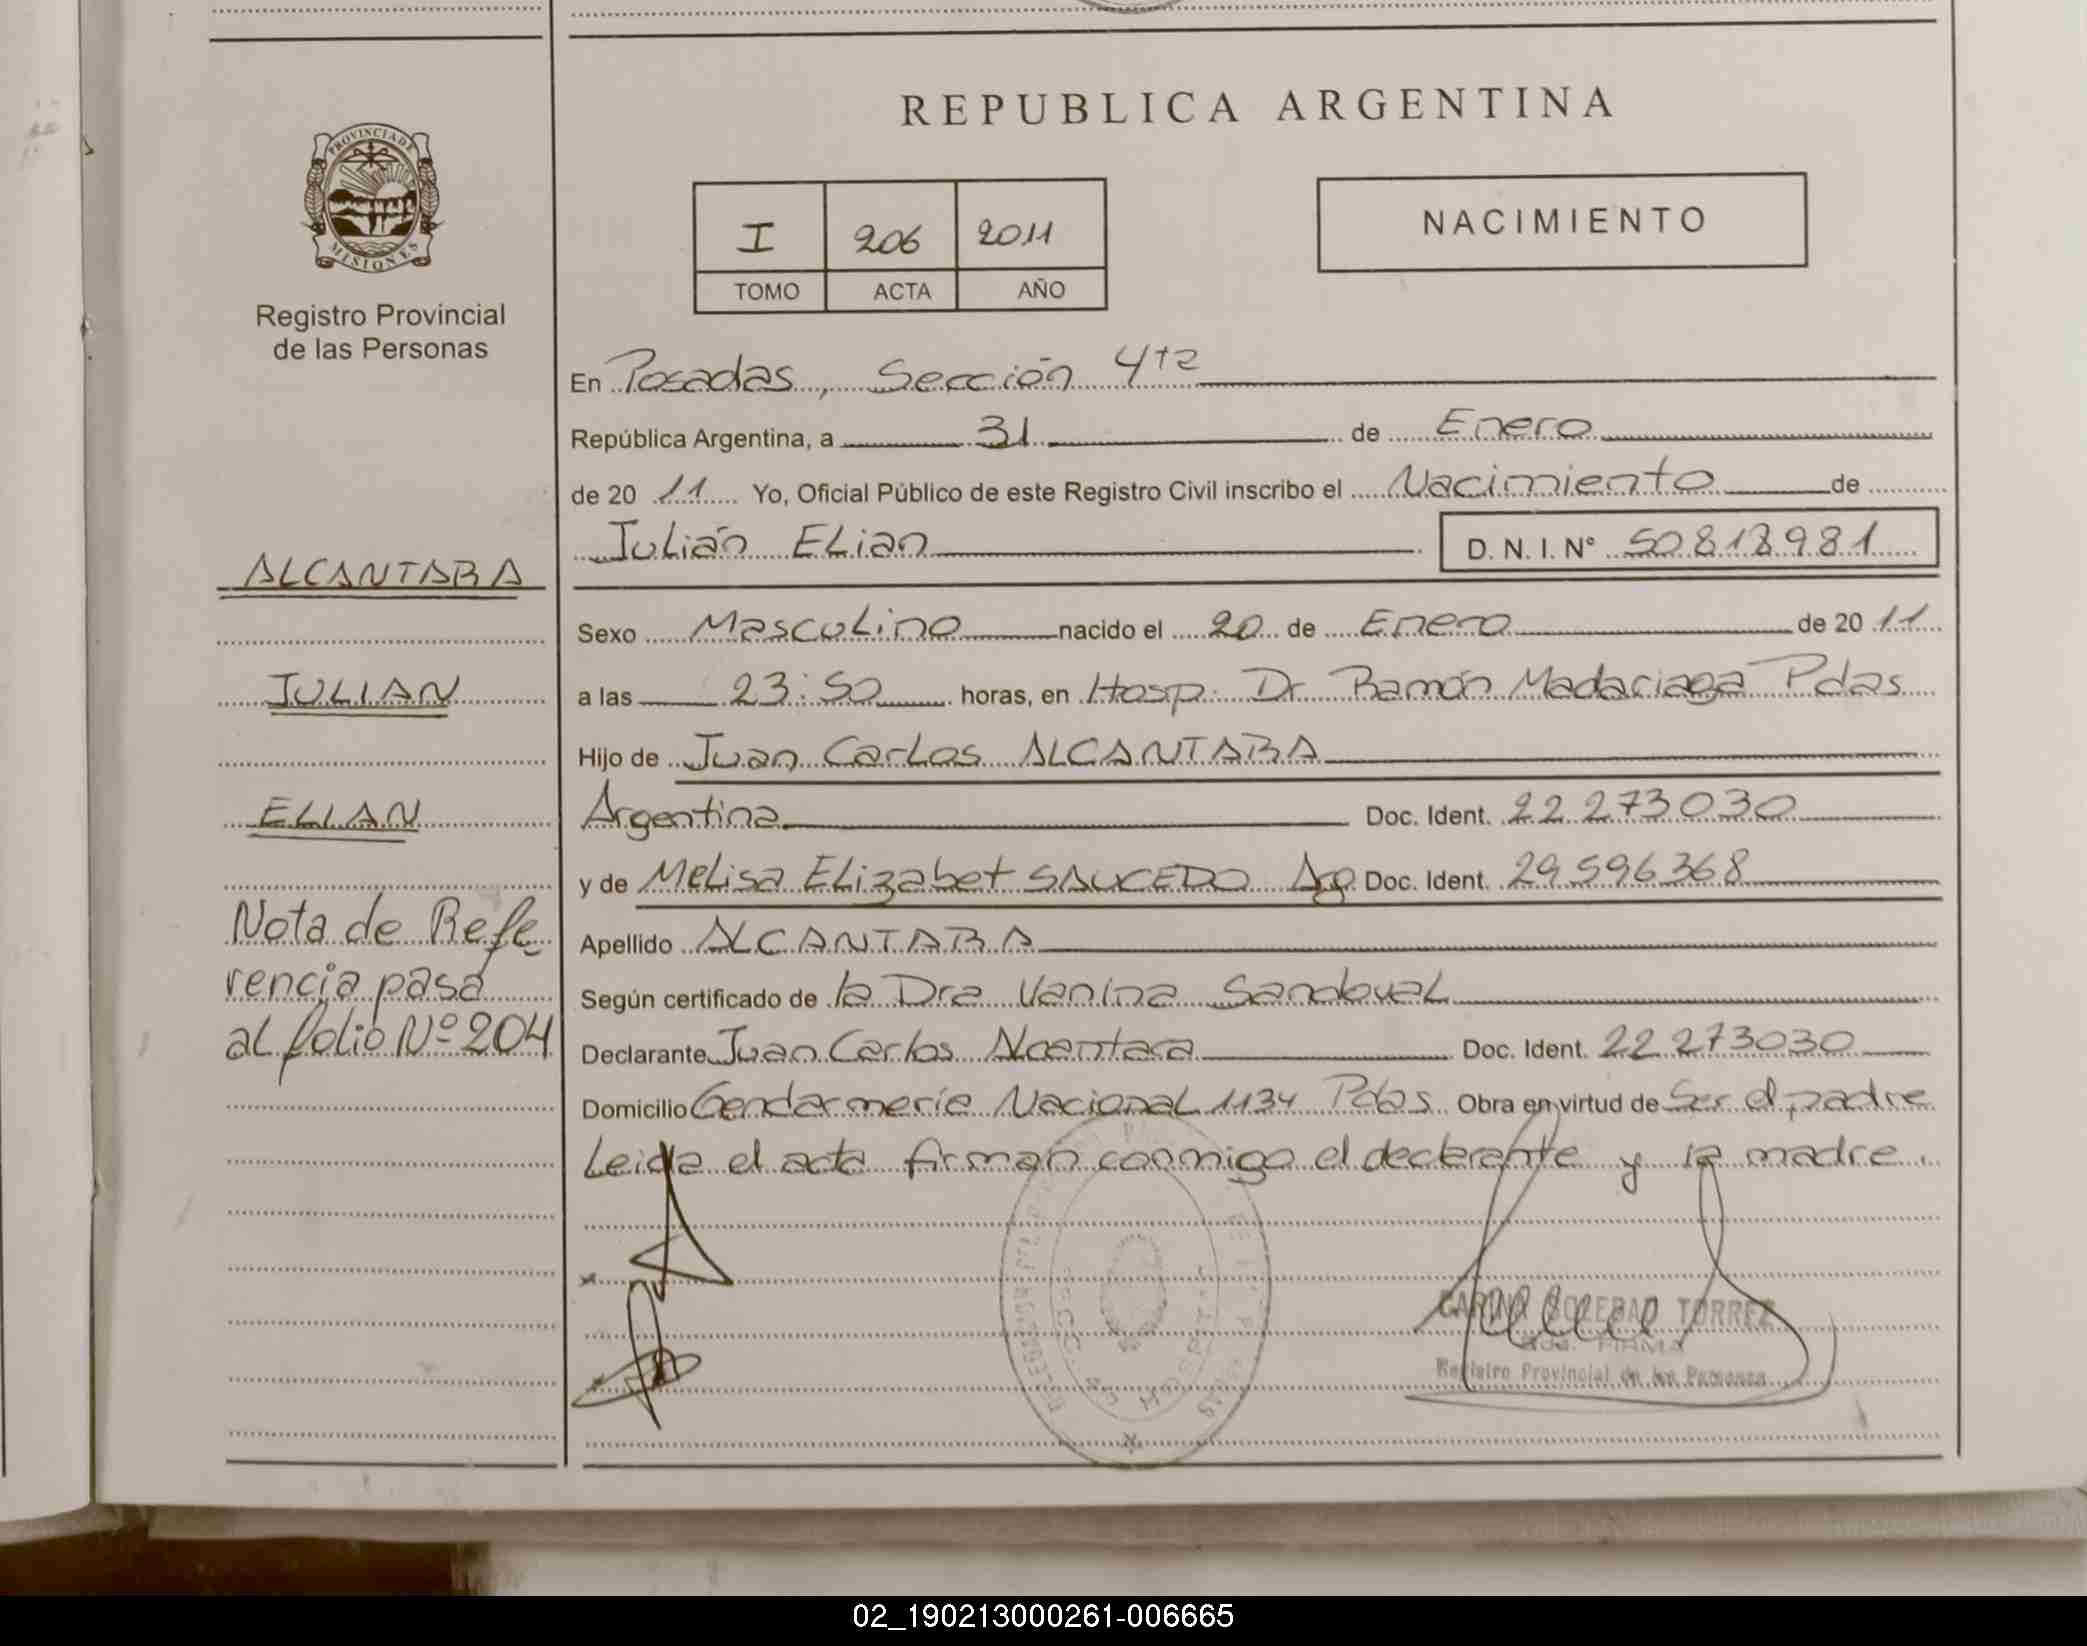 REPUBLICA ARGENTINA
PROVINCIA DE
MISIONES
Registro Provincial
de las Personas
I 206 2011
TOMO ACTA AÑO
NACIMIENTO
En Posadas, Sección 4ta
República Argentina, a 31 de Enero
de 20 11 Yo, Oficial Público de este Registro Civil inscribo el Nacimiento de
Julián Elian D. N. I. Nº 50818981
ALCANTARA
Sexo Masculino nacido el 20 de Enero de 20 11
JULIAN
a las 23:50 horas, en Hosp. Dr. Ramón Madariaga Pdas
Hijo de Juan Carlos ALCANTARA
ELIAN
Argentina Doc. Ident. 22.273030
y de Melisa Elizabet SAUCEDO Arg Doc. Ident. 29.596.368
Nota de Refe
rencia pasa
al folio Nº 204
Apellido ALCANTARA
Según certificado de la Dra Vanina Sandoval
Declarante Juan Carlos Alcantara Doc. Ident. 22.273030
Domicilio Gendarmería Nacional 1134 Pdas Obra en virtud de Ser el padre
Leida el acta firman conmigo el declarante y la madre.
SOLEDAD TORREZ
FIRMA
Registro Provincial de las Personas
02_190213000261-006665